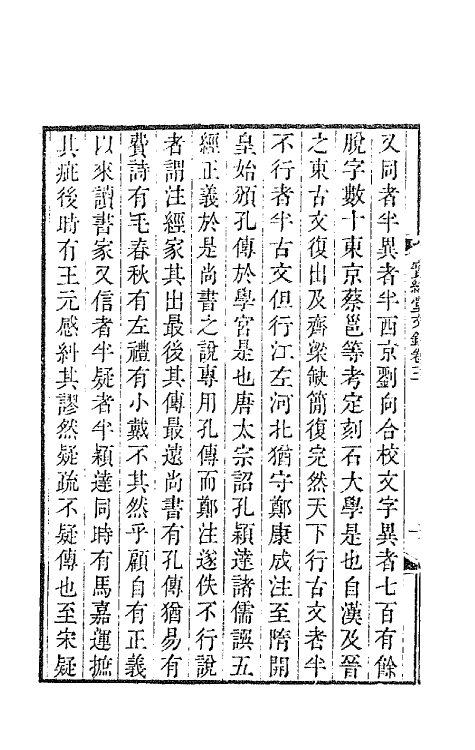 又同者半異者半西京劉向合校文字異者七百有餘
脫字數十東京蔡邕等考定刻石大學是也自漢及晉
之東古文復出及齊梁缺簡復完然天下行古文者半
不行者半古文但行江左河北猶守鄭康成注至隋開
皇始頒孔傳於學宮是也唐太宗詔孔穎達諸儒譔五
經正義於是尚書之說專用孔傳而鄭注遂佚不行說
者謂注經家其出最後其傳最遠尚書有孔傳猶易有
費詩有毛春秋有左禮有小戴不其然乎顧自有正義
以來讀書家又信者半疑者半穎達同時有馬嘉運摭
其疵後時有王元感糾其謬然疑疏不疑傳也至宋疑
寶綸堂文鈔卷三